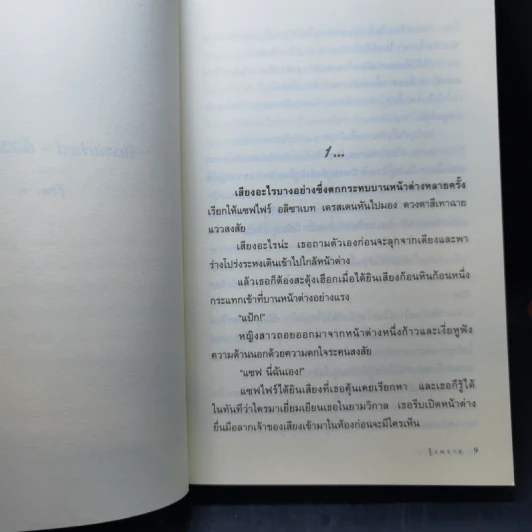 1 ...
เสียงอะไรบางอย่างซึ่งตกกระทบบานหน้าต่างหลายครั้ง
เรียกให้แซฟไฟร์ อลิซาเบท เดรสเดนหันไปมอง ดวงตาสีเทาฉาย
แววสงสัย
เสียงอะไรน่ะ เธอถามตัวเองก่อนจะลุกจากเตียงและพา
ร่างโปร่งระหงเดินเข้าไปใกล้หน้าต่าง
แล้วเธอก็ต้องสะดุ้งเฮือกเมื่อได้ยินเสียงก้อนหินก้อนหนึ่ง
กระแทกเข้าที่บานหน้าต่างอย่างแรง
"แป๊ก!"
หญิงสาวถอยออกมาจากหน้าต่างหนึ่งก้าวและเงี่ยหูฟัง
ความด้านนอกด้วยความตกใจระคนสงสัย
"แซฟ นี่ฉันเอง!"
แซฟไฟร์ได้ยินเสียงที่เธอคุ้นเคยเรียกหา และเธอก็รู้ได้
ในทันทีว่าใครมาเยี่ยมเยียนเธอในยามวิกาล เธอรีบเปิดหน้าต่าง
ยื่นมือลากเจ้าของเสียงเข้ามาในห้องก่อนจะมีใครเห็น
9